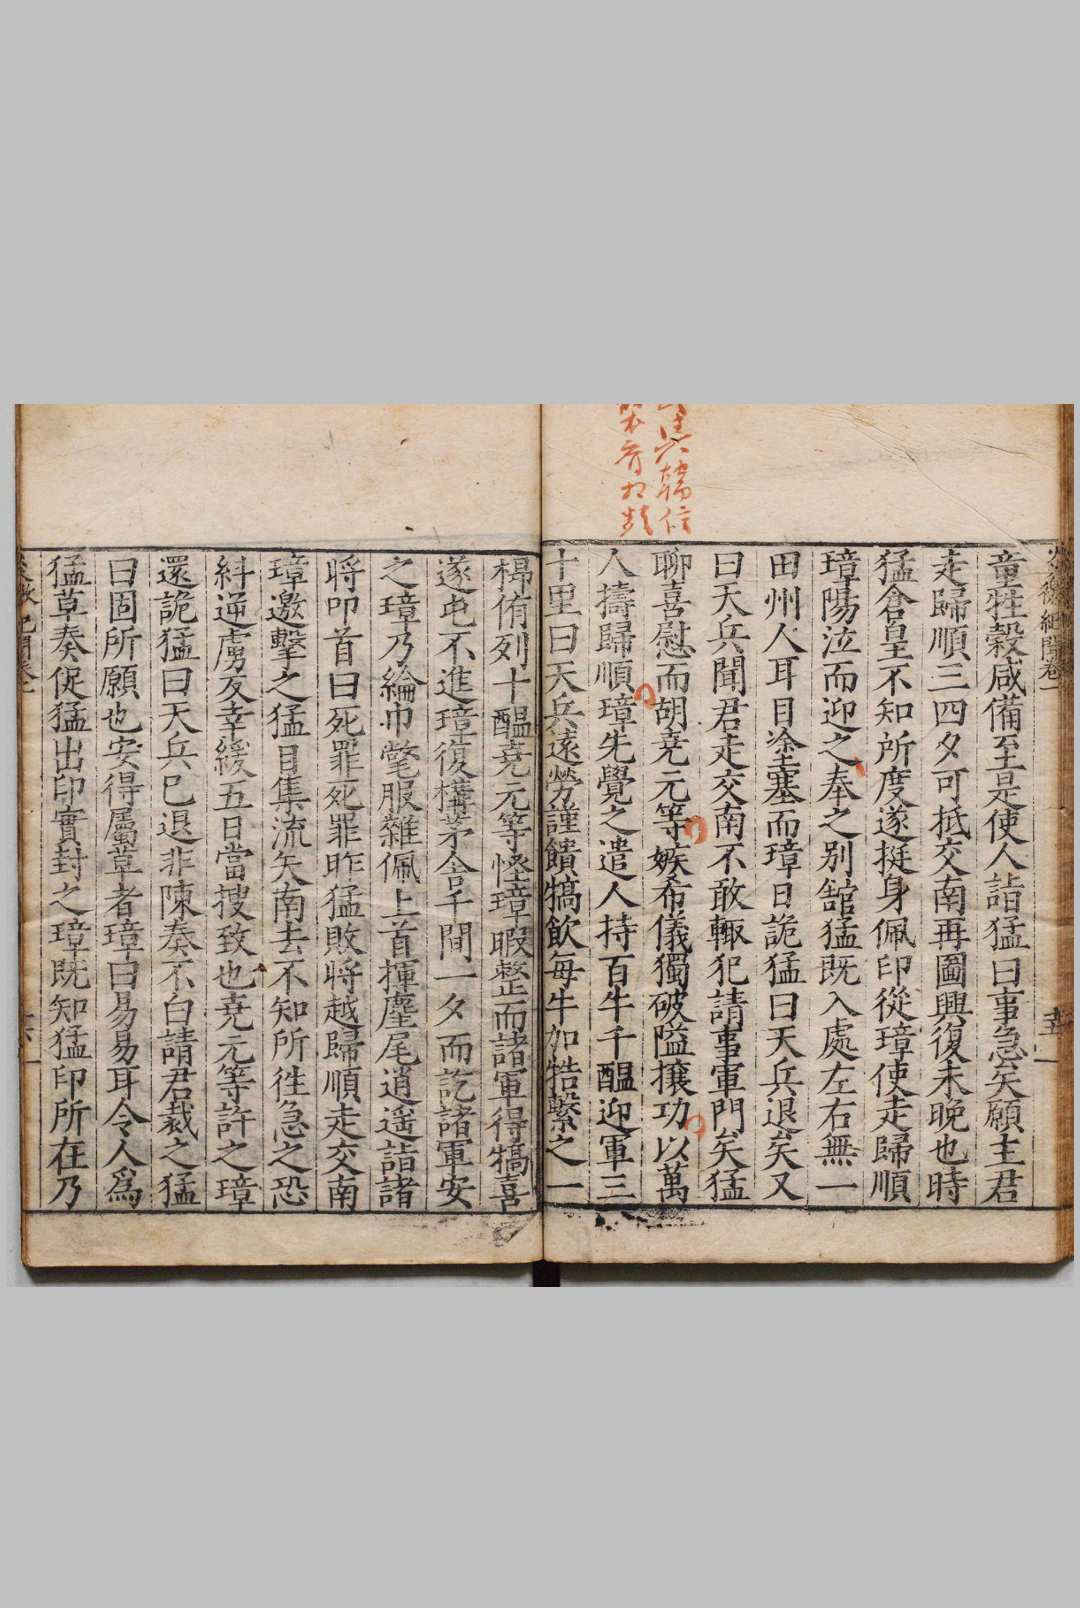 炎徼紀聞卷一
童牲穀咸備至是使人詣猛曰事急矣願主君
走歸順三四夕可抵交南再圖興復未晚也時
猛倉皇不知所度遂挺身佩印從璋使走歸順
璋陽泣而迎之奉之别舘猛既入處左右無一
田州人耳目塗塞而璋日詭猛曰天兵退矣又
曰天兵聞君走交南不敢輙犯請事軍門矣猛
聊喜慰而胡堯元等嫉希儀獨破隘攘功以萬
人擣歸順璋先覺之遣人持百牛千醖迎軍三
十里曰天兵遠勞謹饋犒飲每牛加牿繫之一
楊侑列十醖堯元等怪璋暇整而諸軍得犒喜
遂屯不進璋復構茅舍千間一夕而訖諸軍安
之璋乃綸巾氅服雜佩上首揮麈尾逍遥詣諸
將叩首曰死罪死罪昨猛敗將越歸順走交南
璋邀擊之猛目集流矢南去不知所徃急之恐
糾逆虜友幸緩五日當搜致也堯元等許之璋
還詭猛曰天兵已退非陳奏不白請君裁之猛
曰固所願也安得屬草者璋曰易易耳令人為
猛草奏促猛出印實封之璋既知猛印所在乃